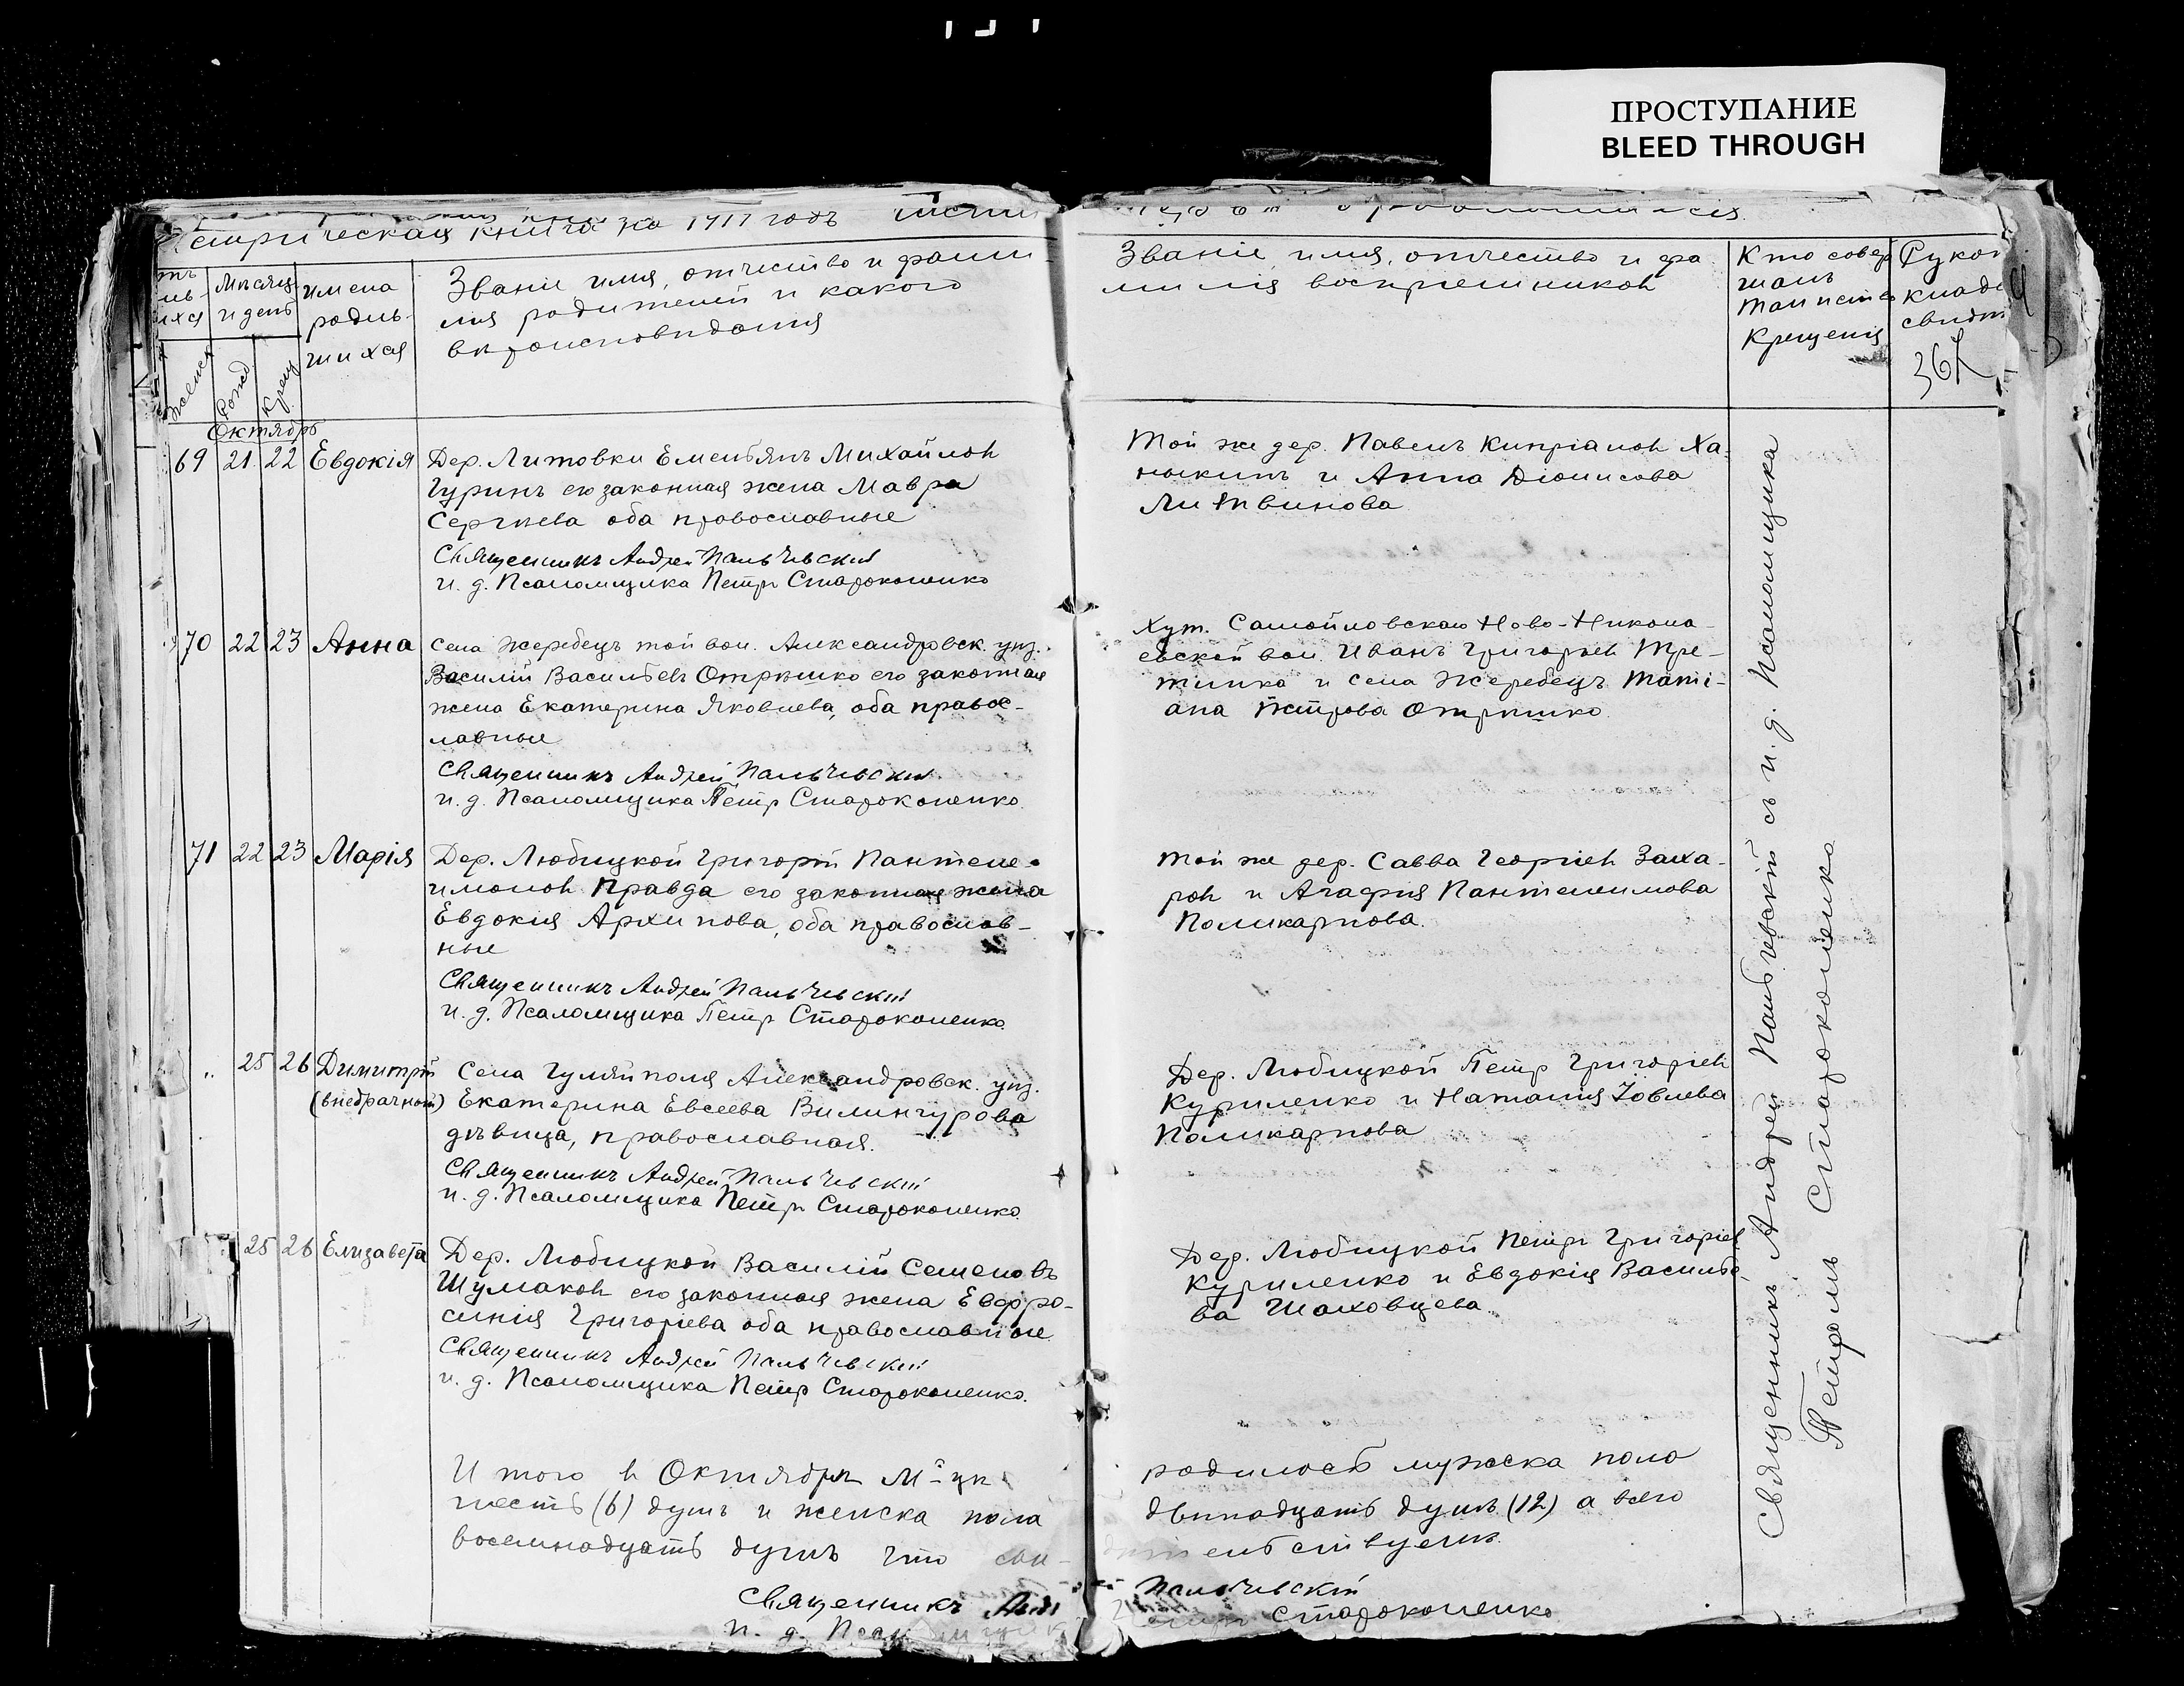 ПРОСТУПАНИЕ
BLEED THROUGH
Метрическая книга на 1917 годъ
Мѣсяцъ и день
Рожд.
Крещ.
Имена родив-
шихся
Званіе имя, отчество и фами-
лія родителей и какого
вѣроисповѣданія
Званіе, имя, отчество и фа-
милія воспріемниковъ
Кто совер
шалъ
таинство
Крещенія
Рукоп
кладс
свидѣт
367
Октябрь
69 21 22 Евдокія
Дер. Литовки Емельянъ Михайловъ
Гуринъ его законная жена Мавра
Сергѣева оба православные
Священникъ Андрей Пальчевскій
и. д. Псаломщика Петръ Староконенко
Той же дер. Павелъ Кипріановъ Ха-
ныкинъ и Анна Діонисова
Литвинова
70 22 23 Анна
Села Жеребецъ той вол. Александровск. уѣз.
Василій Васильевъ Отрѣшко его законная
жена Екатерина Яковлева, оба правос-
лавные
Священникъ Андрей Пальчевскій
и. д. Псаломщика Петръ Староконенко.
Хут. Самойловскаго Ново-Никола-
евской вол. Иванъ Григорьевъ Тре-
тинко и села Жеребецъ Таті-
ана Петрова Отрѣшко.
71 22 23 Марія
Дер. Любицкой Григорій Пантеле-
имоновъ Правда его законная жена
Евдокія Архипова, оба православ-
ные
Священникъ Андрей Пальчевскій
и. д. Псаломщика Петр Староконенко.
Той же дер. Савва Георгіевъ Заха-
ровъ и Агафія Пантелеимова
Поликарпова.
" 25 26 Димитрій
(внебрачный)
Села Гуляйполя Александровск. уѣз.
Екатерина Евсеева Вилингурова
дѣвица, православная.
Священникъ Андрей Пальчевскій
и. д. Псаломщика Петръ Староконенко.
Дер. Любицкой Петр Григоріевъ
Куриленко и Наталія Іовлева
Поликарпова
25 26 Елизавета
Дер. Любицкой Василій Семеновъ
Шумаковъ его законная жена Евфро-
синія Григоріева оба православные
Священникъ Андрей Пальчевскій
и. д. Псаломщика Петръ Староконенко.
Дер. Любицкой Петръ Григоріев
Куриленко и Евдокія Василье-
ва Шаховцева.
Итого въ Октябрѣ М-цѣ родилось мужска пола
шесть (6) душъ и женска пола двѣнадцать душъ (12) а всего
восемнадцать душъ что сви-дѣтельствуемъ
Священникъ Анд Пальчевскій
и. д. Псаломщика Петръ Староконенко
Священникъ Андрей Пальчевскій съ и. д. Псаломщика
Петромъ Староконенко